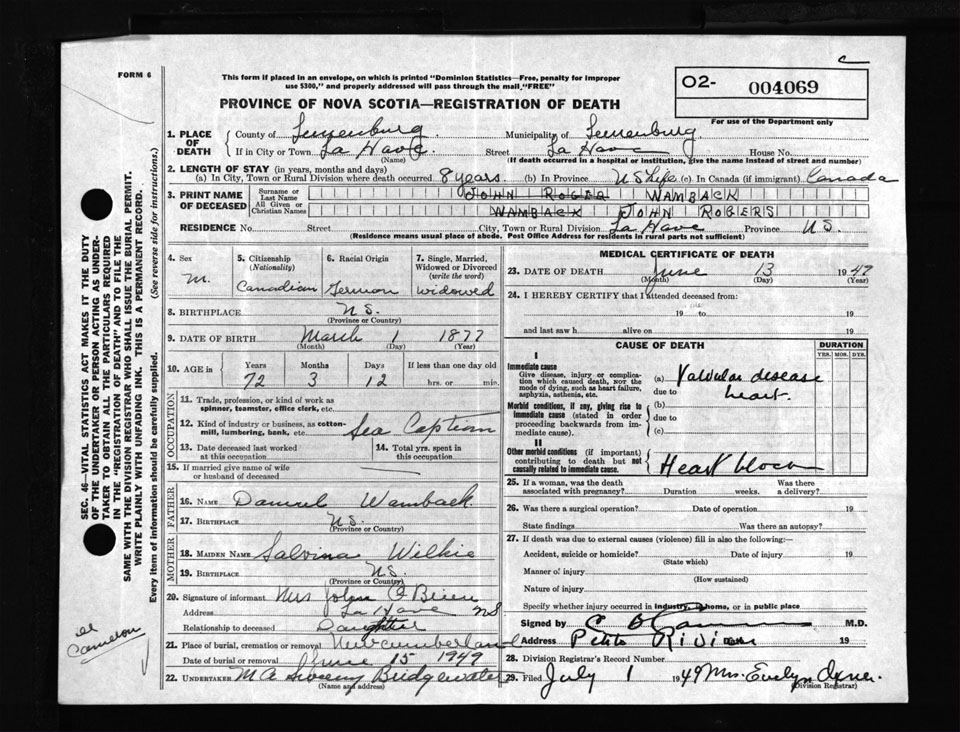 FORM 6
This form if placed in an envelope, on which is printed "Dominion Statistics—Free, penalty for improper
use $300," and properly addressed will pass through the mail "FREE"
02- 004069
For use of the Department only
PROVINCE OF NOVA SCOTIA—REGISTRATION OF DEATH
1. PLACE OF DEATH { County of Lunenburg Municipality of Lunenburg
If in City or Town La Have (Name) Street La Have House No.
(If death occurred in a hospital or institution, give the name instead of street and number)
2. LENGTH OF STAY (in years, months and days)
(a) In City, Town or Rural Division where death occurred 8 years. (b) In Province NS Life (c) In Canada (if immigrant) Canada
3. PRINT NAME OF DECEASED { Surname or Last Name JOHN ROGER WAMBACK
All Given or Christian Names WAMBACK JOHN ROGERS
RESIDENCE No. Street City, Town or Rural Division La Have Province N.S.
(Residence means usual place of abode. Post Office Address for residents in rural parts not sufficient)
4. Sex M.
5. Citizenship (Nationality) Canadian
6. Racial Origin German
7. Single, Married, Widowed or Divorced (write the word) widowed
8. BIRTHPLACE N.S.
(Province or Country)
9. DATE OF BIRTH March 1 1877
(Month) (Day) (Year)
10. AGE in { Years 72 Months 3 Days 12 If less than one day old hrs. or min.
OCCUPATION
11. Trade, profession, or kind of work as spinner, teamster, office clerk, etc.
12. Kind of industry or business, as cotton-mill, lumbering, bank, etc. Sea Captian
13. Date deceased last worked at this occupation
14. Total yrs. spent in this occupation
15. If married give name of wife or husband of deceased
FATHER
16. NAME Daniel Wamback
17. BIRTHPLACE N.S.
(Province or Country)
MOTHER
18. MAIDEN NAME Salvina Wilkie
19. BIRTHPLACE N.S.
(Province or Country)
20. Signature of informant Mrs John O Brien
Address La Have NS
Relationship to deceased Daughter
21. Place of burial, cremation or removal New cumberland
Date of burial or removal June 15 1949
22. UNDERTAKER M A Sweeny Bridgewater
(Name and address)
MEDICAL CERTIFICATE OF DEATH
23. DATE OF DEATH June 13 1949
(Month) (Day) (Year)
24. I HEREBY CERTIFY that I attended deceased from:
19 to 19
and last saw h alive on 19
CAUSE OF DEATH
DURATION
YRS. MOS. DYS.
I
Immediate cause
Give disease, injury or complication which caused death, NOT the mode of dying, such as heart failure, asphyxia, asthenia, etc.
(a) Valvular disease
due to heart.
Morbid conditions, if any, giving rise to immediate cause (stated in order proceeding backwards from immediate cause).
(b)
due to
(c)
II
Other morbid conditions (if important) contributing to death but not causally related to immediate cause.
Heart block
25. If a woman, was the death associated with pregnancy? Duration weeks. Was there a delivery?
26. Was there a surgical operation? Date of operation 19
State findings Was there an autopsy?
27. If death was due to external causes (violence) fill in also the following:—
Accident, suicide or homicide? Date of injury 19
(State which)
Manner of injury
(How sustained)
Nature of injury
Specify whether injury occurred in industry, in home, or in public place
Signed by M.D.
Address Petite Riviere Date 19
28. Division Registrar's Record Number
29. Filed July 1 1949 Mrs. Evelyn
(Division Registrar)
SEC. 46—VITAL STATISTICS ACT MAKES IT THE DUTY
OF THE UNDERTAKER OR PERSON ACTING AS UNDER-
TAKER TO OBTAIN ALL THE PARTICULARS REQUIRED
IN THE "REGISTRATION OF DEATH" AND TO FILE THE
SAME WITH THE DIVISION REGISTRAR WHO SHALL ISSUE THE BURIAL PERMIT.
WRITE PLAINLY WITH UNFADING INK. THIS IS A PERMANENT RECORD.
Every item of information should be carefully supplied. (See reverse side for instructions.)
Cameron